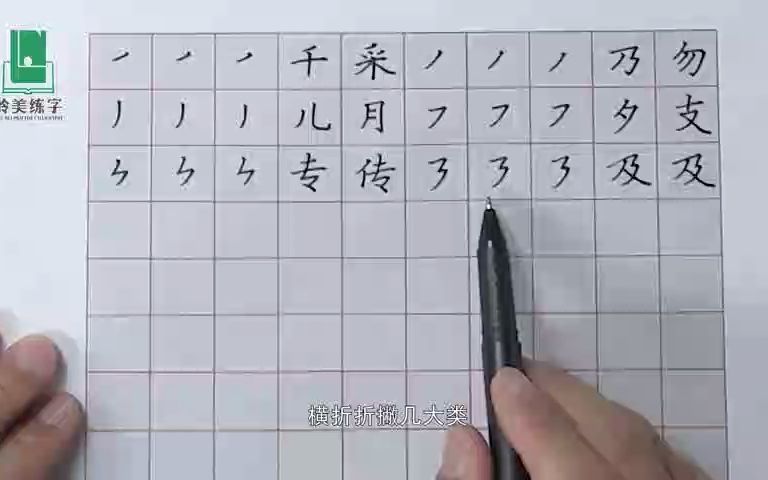 ㇒ ㇒ ㇒ 千 采 ㇒ ㇒ ㇒ 乃 勿
丿 丿 丿 儿 月 ㇇ ㇇ ㇇ 夕 支
ㄣ ㄣ ㄣ 专 传 ㇋ ㇋ ㇋ 及 及
美练字
横折折撇几大类